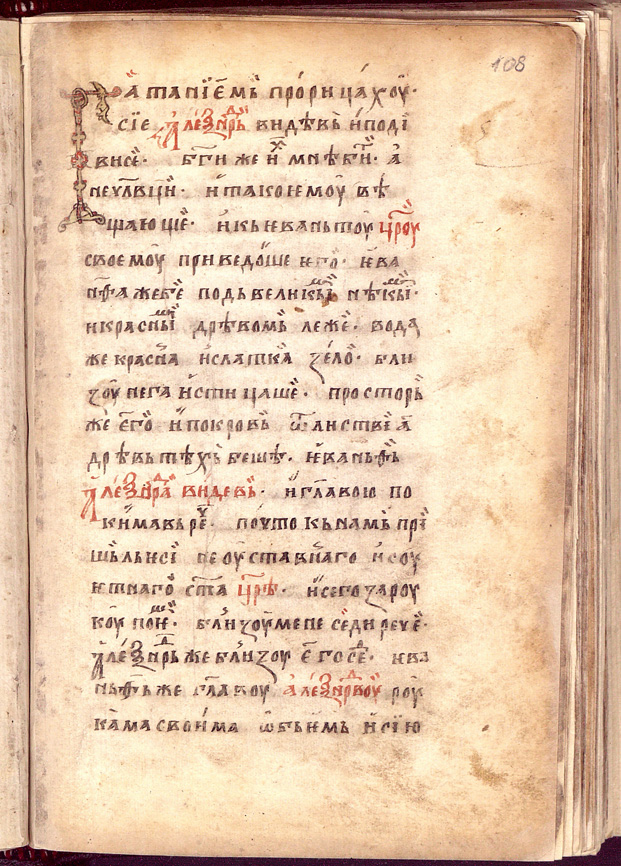 108
ата нїемь прорицахоу·
сїе алеѯнⷣрь видѣвь и поди
висе· б҃ги же и мнѣ б҃ги· а
не чл҃вци· и тако ѥмоу вѣ
щающе· и кь ивaньтоу цр҃оу
своемоу приведоше ѥго· ива
подь великыⷨ нѣкыⷨ·
и красныⷨ дрѣвомь леже· вода
же красна и слатка ѕело· бли
зоу нега истицаше· просторь
же его и покровь ѿ листвїа
дрѣвь тѣхь беше·
алеѯнⷣра видевь· и главою по
кимавь рⷱе· почто кь намь прї
шьль иси не оуставнаго и соу
ѥтнаго ст҃а цр҃ѣ· и сего за роу
коу поⷨѥ· близоу мене седи рече·
алеѯнⷣрь же близоу его сеⷣ· ива
же главоу алеѯнⷣровоу роу
кама своима ѡбьѥмь и сїю